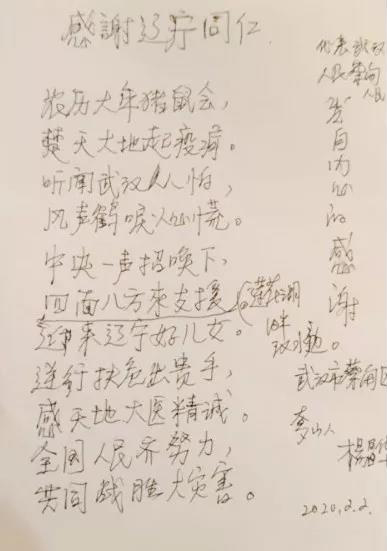 感謝辽宁同仁
农历大年猪鼠会，
楚天大地起疫病。
听闻武汉人人怕，
风声鹤唳人心慌。
中央一声招唤下，
四面八方来支援
莲花湖
迎来辽宁好儿女。
逆行扶危出贵手，
感天地大医精诚。
全国人民齐努力，
共同战胜大灾害。
代表武汉
人民蔡甸
人民
发自内心的感谢
武汉市蔡甸区
2020.2.2